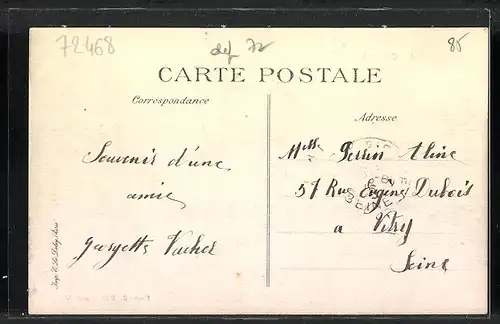 72468
def 72
85
CARTE POSTALE
Correspondance
Adresse
Souvenir d'une
amie
Vacher
Melle Perrin Aline
57 Rue Eugène Dubois
a Vitry
Seine
SEINE